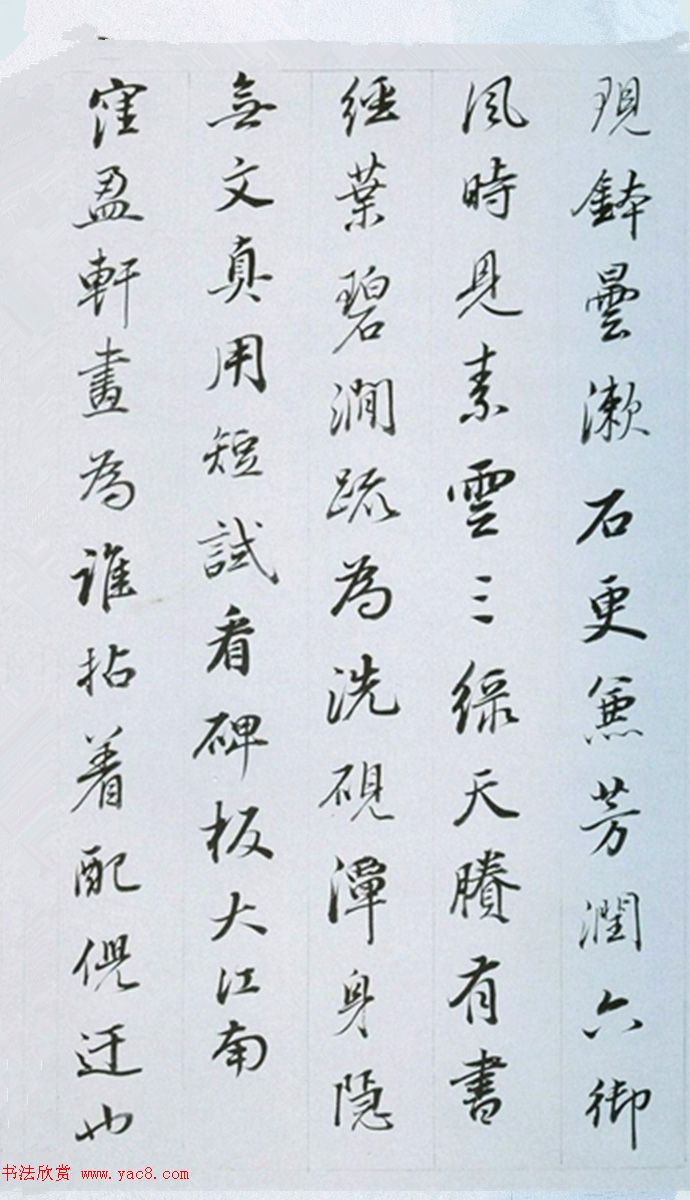 現鉢曇漱石更兼芳潤六御
風時見素雲三綠天賸有書
經葉碧澗疏為洗硯潭身隱
無文真用短試看碑板大江南
窪盈軒畫為誰拈着配倪迂也
书法欣赏 www.yac8.com